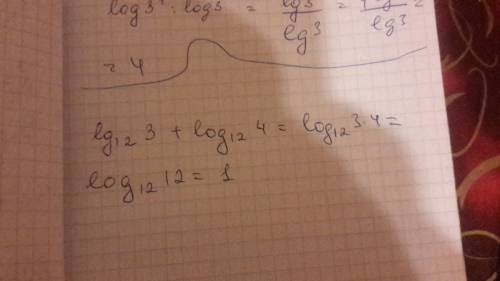 log3⁴ : log3 = lg3⁴/lg3 = /lg3 =
= 4
lg₁₂ 3 + log₁₂ 4 = log₁₂ 3·4 =
log₁₂ 12 = 1